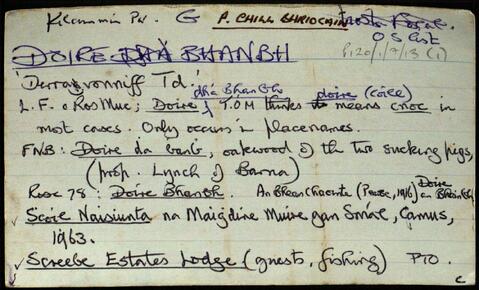 Kilcummin Par. G P. CHILL BHRIOCÁIN
O S List
P,20/1/7/13 (1)
DOIRE DHÁ BHANBH
'Derravonniff Td.'
dha Bhanbh doire (coill)
L.F. o Ros Muc; Doire T.O'M thinks means cnoc in
most cases. Only occurs in placenames.
FNB: Doire da banb, oakwood of the two sucking pigs,
(prop. Lynch of Barna)
Rose 78: Doire Bhanbh. An Bhean Chaointe (Pearse, 1916) Doire an Bhainbh
✓ Scoil Naisiunta na Maigdine Muire gan Smál, Camus,
1963.
✓ Screebe Estates Lodge (guests, fishing) PTO.
c